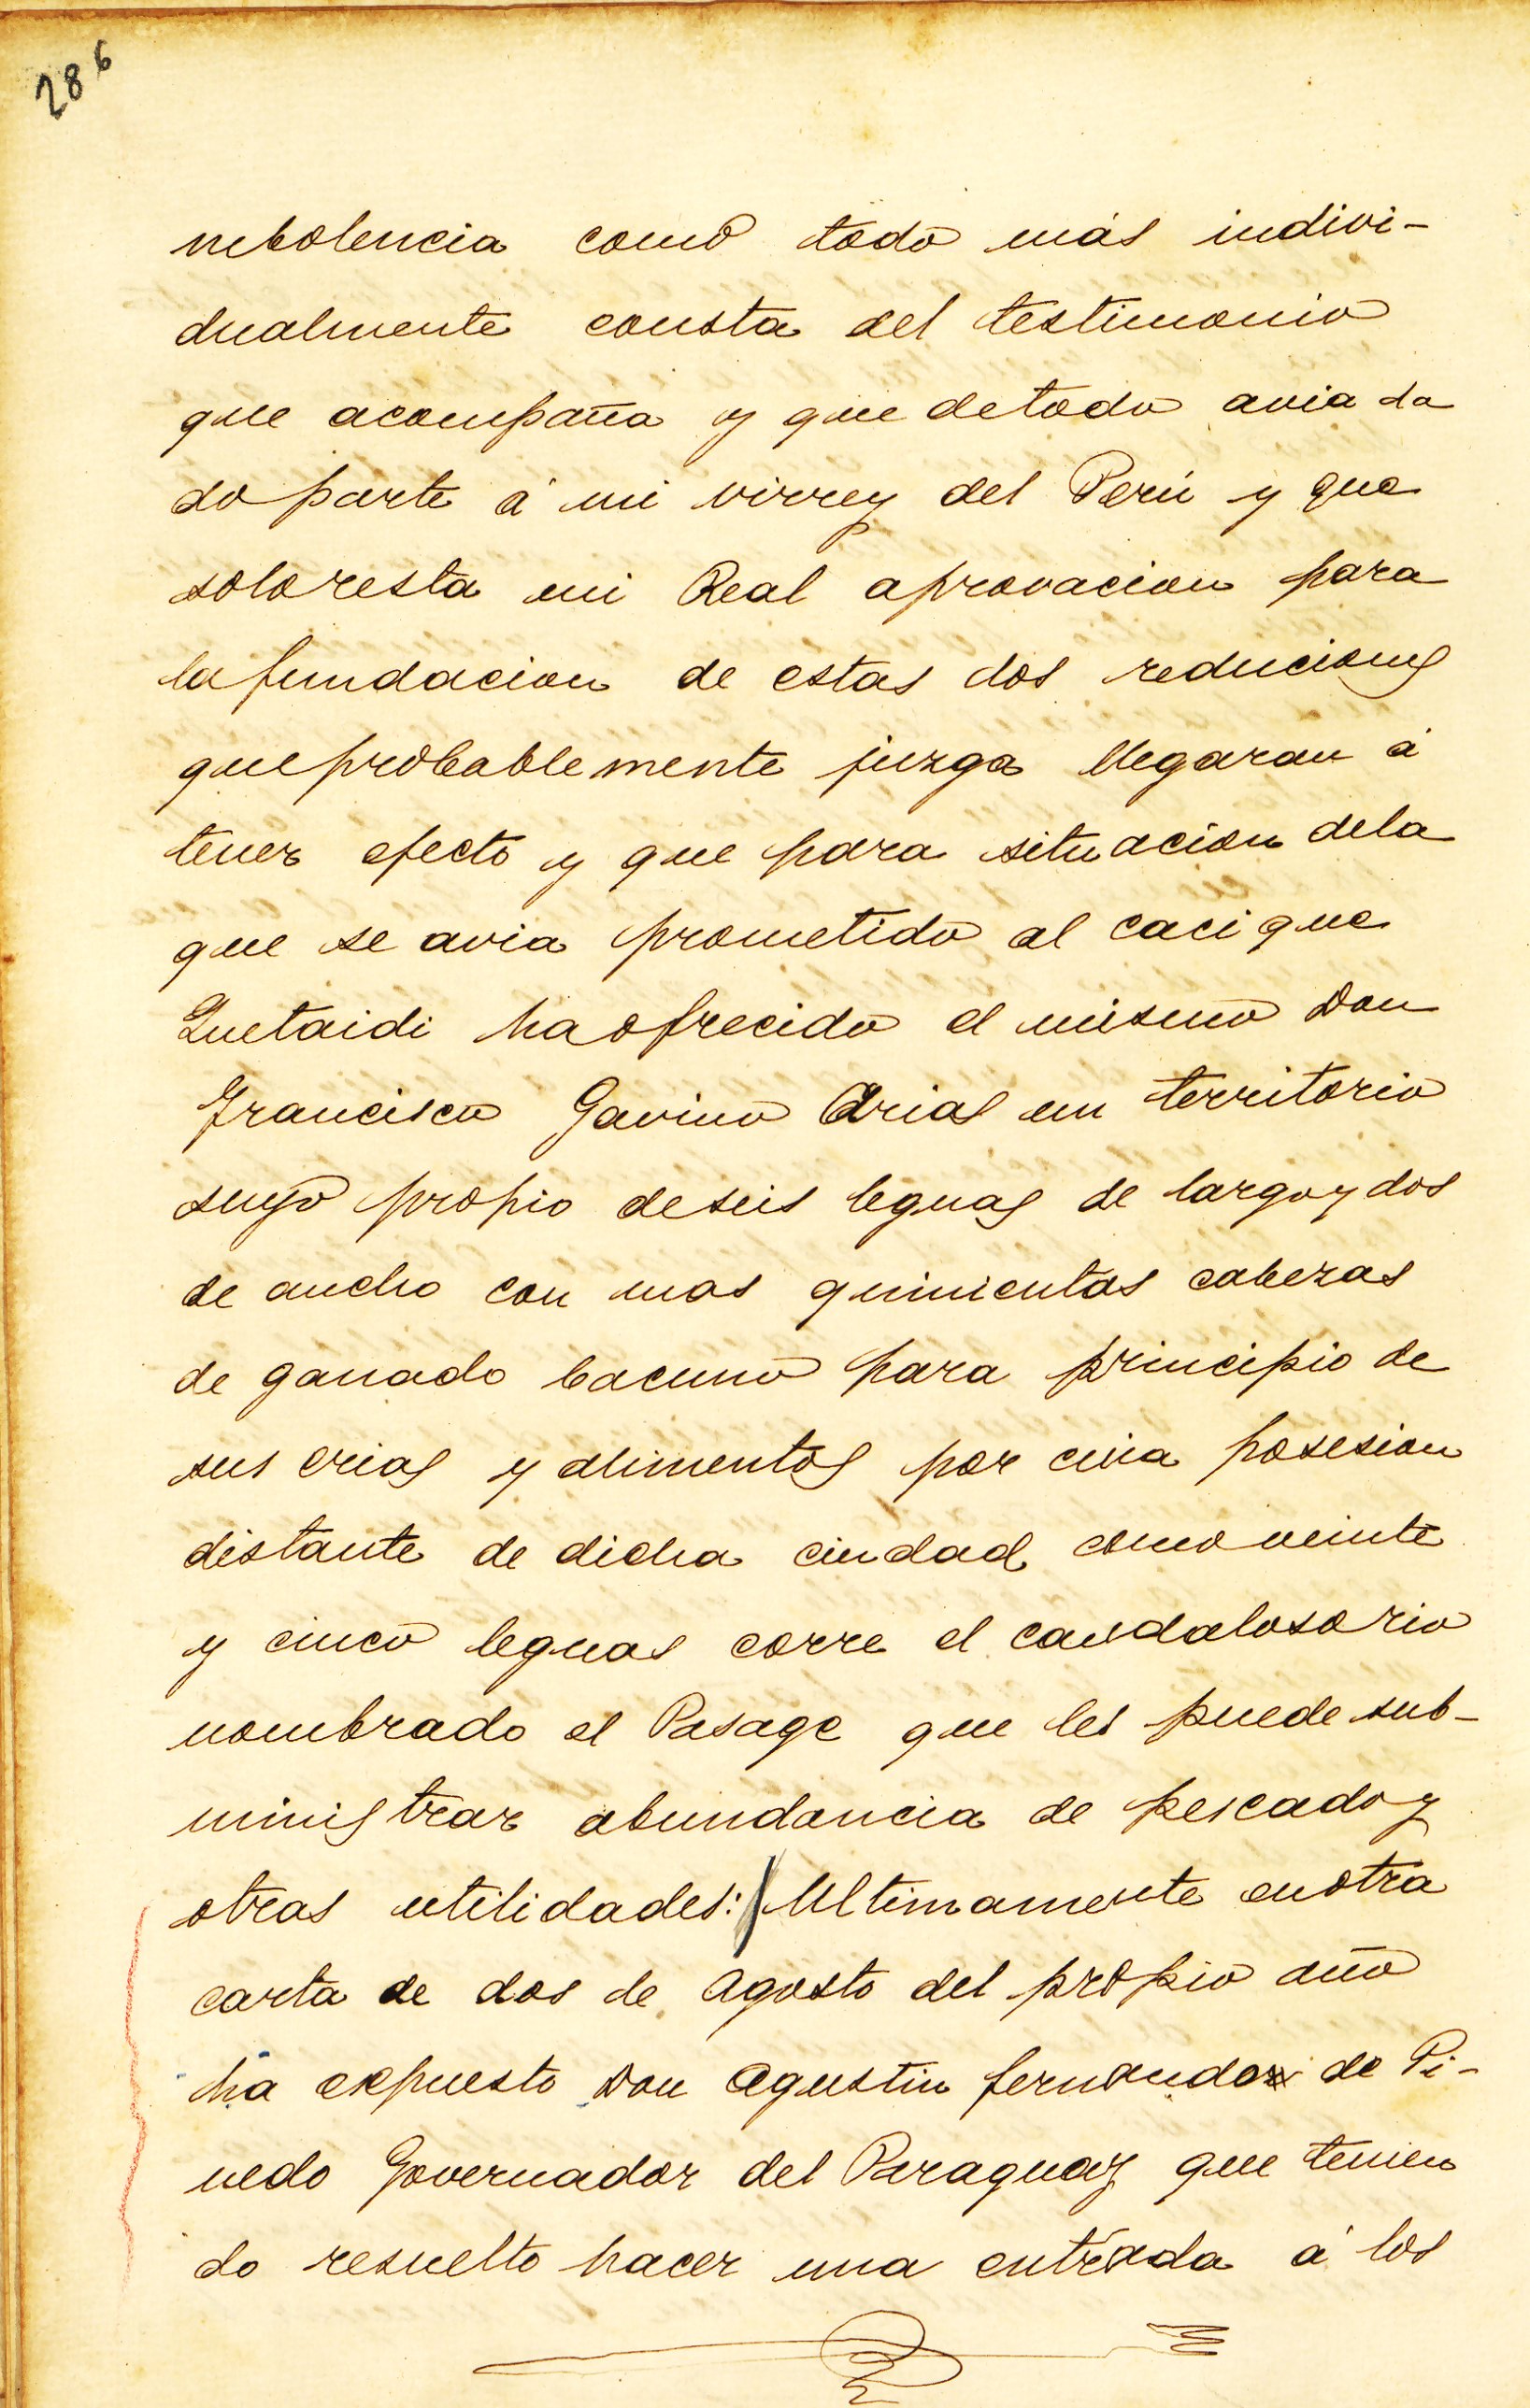 286
nebolencia como todo más indivi-
dualmente consta del testimonio
que acompaña y que detodo avia da
do parte á mi virrey del Perú y que
soloresta mi Real aprovacion para
lafundacion de estas dos reduciones
queprobablemente juzga llegaran á
tener efecto y que para situacion dela
que se avia prometido al cacique
Quetaidi haofrecido el mismo Don
Francisco Gavino Arias un territorio
suyo propio deseis leguas de largoy dos
de ancho con mas quinientas cabezas
de ganado bacuno para principio de
sus crias y alimentos por cuia posesion
distante de dicha ciudad como veinte
y cinco leguas corre el caudalosorio
nombrado el Pasage que les puede sub-
ministrar abundancia de pescadoy
otras utilidades: Ultimamente enotra
carta de dos de Agosto del propio año
ha expuesto Don Agustin fernandez de Pi-
nedo Governador del Paraguay que tenien
do resuelto hacer una entrada á los